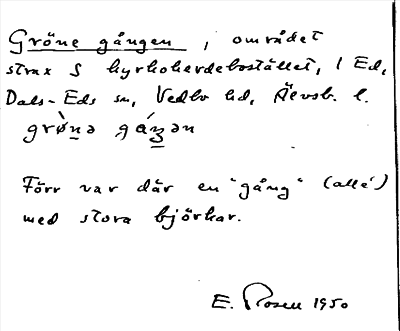 Gröne gången, området
strax S kyrkoherdebostället, i Ed,
Dals-Eds sn, Vedbo hd, Älvsb. l.
grø̀nə gáŋən
Förr var där en "gång" (allé)
med stora björkar.
E. Rosell 1950